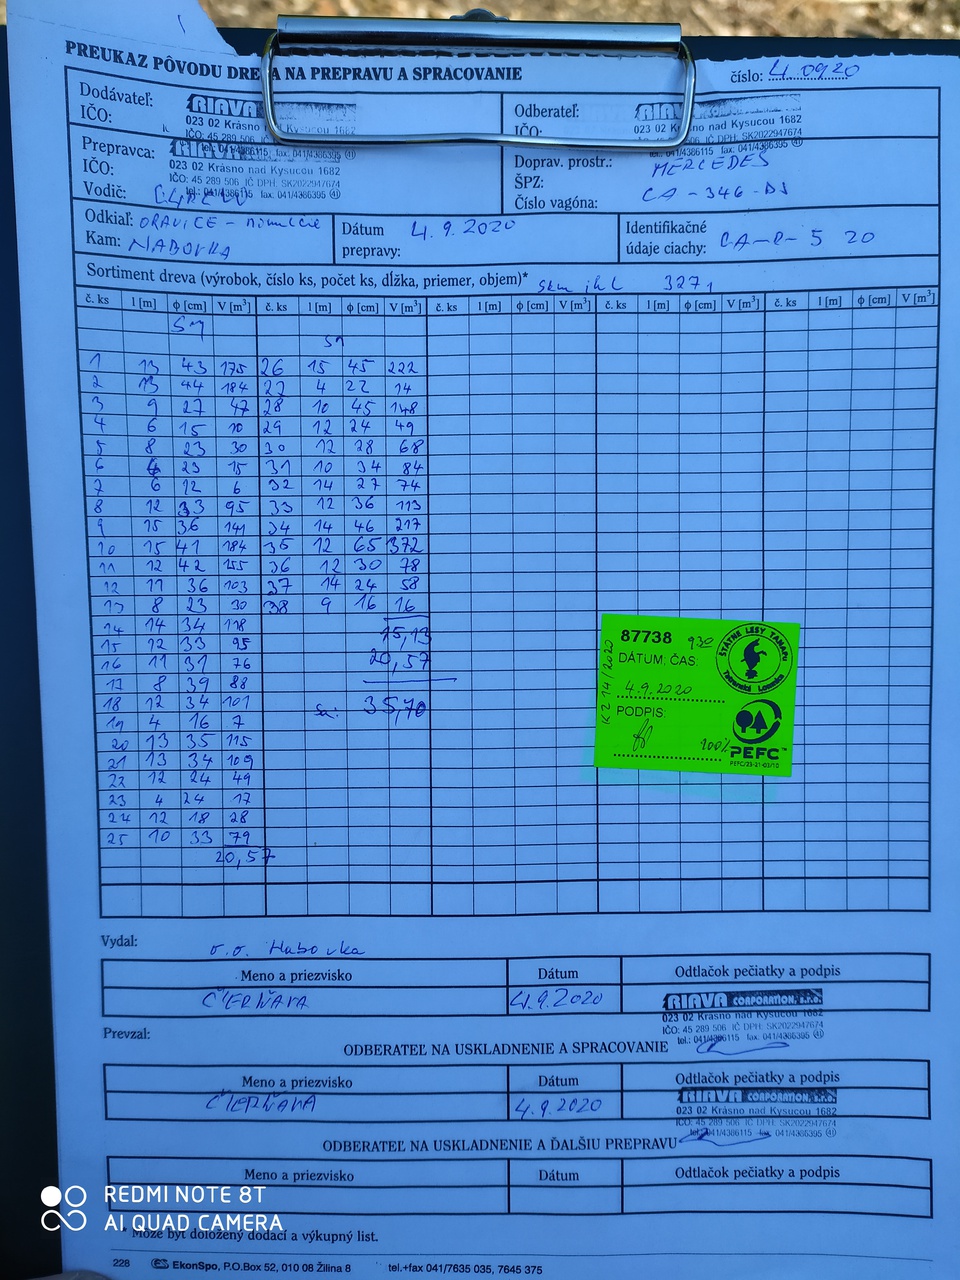 PREUKAZ PÔVODU DREVA NA PREPRAVU A SPRACOVANIE
číslo: 4.0920
Dodávateľ:
IČO:
RIAVA
023 02 Krásno nad Kysucou 1682
IČO: 45 289 506
tel.: 041/4386115 fax: 041/4386395
Odberateľ:
IČO:
RIAVA
023 02 Krásno nad Kysucou 1682
IČO: 45 289 506 IČ DPH: SK2022947674
tel.: 041/4386115 fax: 041/4386395
Prepravca:
IČO:
Vodič:
RIAVA
023 02 Krásno nad Kysucou 1682
IČO: 45 289 506 IČ DPH: SK2022947674
tel.: 041/4386115 fax: 041/4386395
Doprav. prostr.: MERCEDES
ŠPZ:
Číslo vagóna: CA-346-DJ
Odkiaľ: ORAVICE -
Kam: HABOVKA
Dátum prepravy: 4.9.2020
Identifikačné údaje ciachy: CA-R-5 20
Sortiment dreva (výrobok, číslo ks, počet ks, dĺžka, priemer, objem)* 3271
č. ks l [m] ϕ [cm] V [m³] č. ks l [m] ϕ [cm] V [m³] č. ks l [m] ϕ [cm] V [m³] č. ks l [m] ϕ [cm] V [m³] č. ks l [m] ϕ [cm] V [m³]
SM
SM
1 13 43 175 26 15 45 222
2 13 44 184 27 4 22 14
3 9 27 47 28 10 45 148
4 6 15 10 29 12 24 49
5 8 23 30 30 12 28 68
6 4 23 15 31 10 34 84
7 6 12 6 32 14 27 74
8 12 33 95 33 12 36 113
9 15 36 141 34 14 46 217
10 15 41 184 35 12 65 372
11 12 42 155 36 12 30 78
12 11 36 103 37 14 24 58
13 8 23 30 38 9 16 16
14 14 34 118 15,13
15 12 33 95
16 11 31 76 20,57
17 8 39 88
18 12 34 101 35,70
19 4 16 7
20 13 35 115
21 13 34 109
22 12 24 49
23 4 24 17
24 12 18 28
25 10 33 79
20,57
87738 930
K 2 14/2020
DÁTUM; ČAS:
4.9.2020
PODPIS:
100%
ŠTÁTNE LESY TANAPU
Tatranská Lomnica
PEFC™
PEFC/23-21-03/10
Vydal: o.o. Habovka
Meno a priezvisko Dátum Odtlačok pečiatky a podpis
ČIERŇAVA 4.9.2020
RIAVA CORPORATION, s.r.o.
023 02 Krásno nad Kysucou 1682
IČO: 45 289 506 IČ DPH: SK2022947674
tel.: 041/4386115 fax: 041/4386395
Prevzal:
ODBERATEĽ NA USKLADNENIE A SPRACOVANIE
Meno a priezvisko Dátum Odtlačok pečiatky a podpis
ČIERŇAVA 4.9.2020
RIAVA CORPORATION, s.r.o.
023 02 Krásno nad Kysucou 1682
IČO: 45 289 506 IČ DPH: SK2022947674
tel.: 041/4386115 fax: 041/4386395
ODBERATEĽ NA USKLADNENIE A ĎALŠIU PREPRAVU
Meno a priezvisko Dátum Odtlačok pečiatky a podpis
* Môže byť doložený dodací a výkupný list.
228 EkonSpo, P.O.Box 52, 010 08 Žilina 8 tel.+fax 041/7635 035, 7645 375
REDMI NOTE 8T
AI QUAD CAMERA